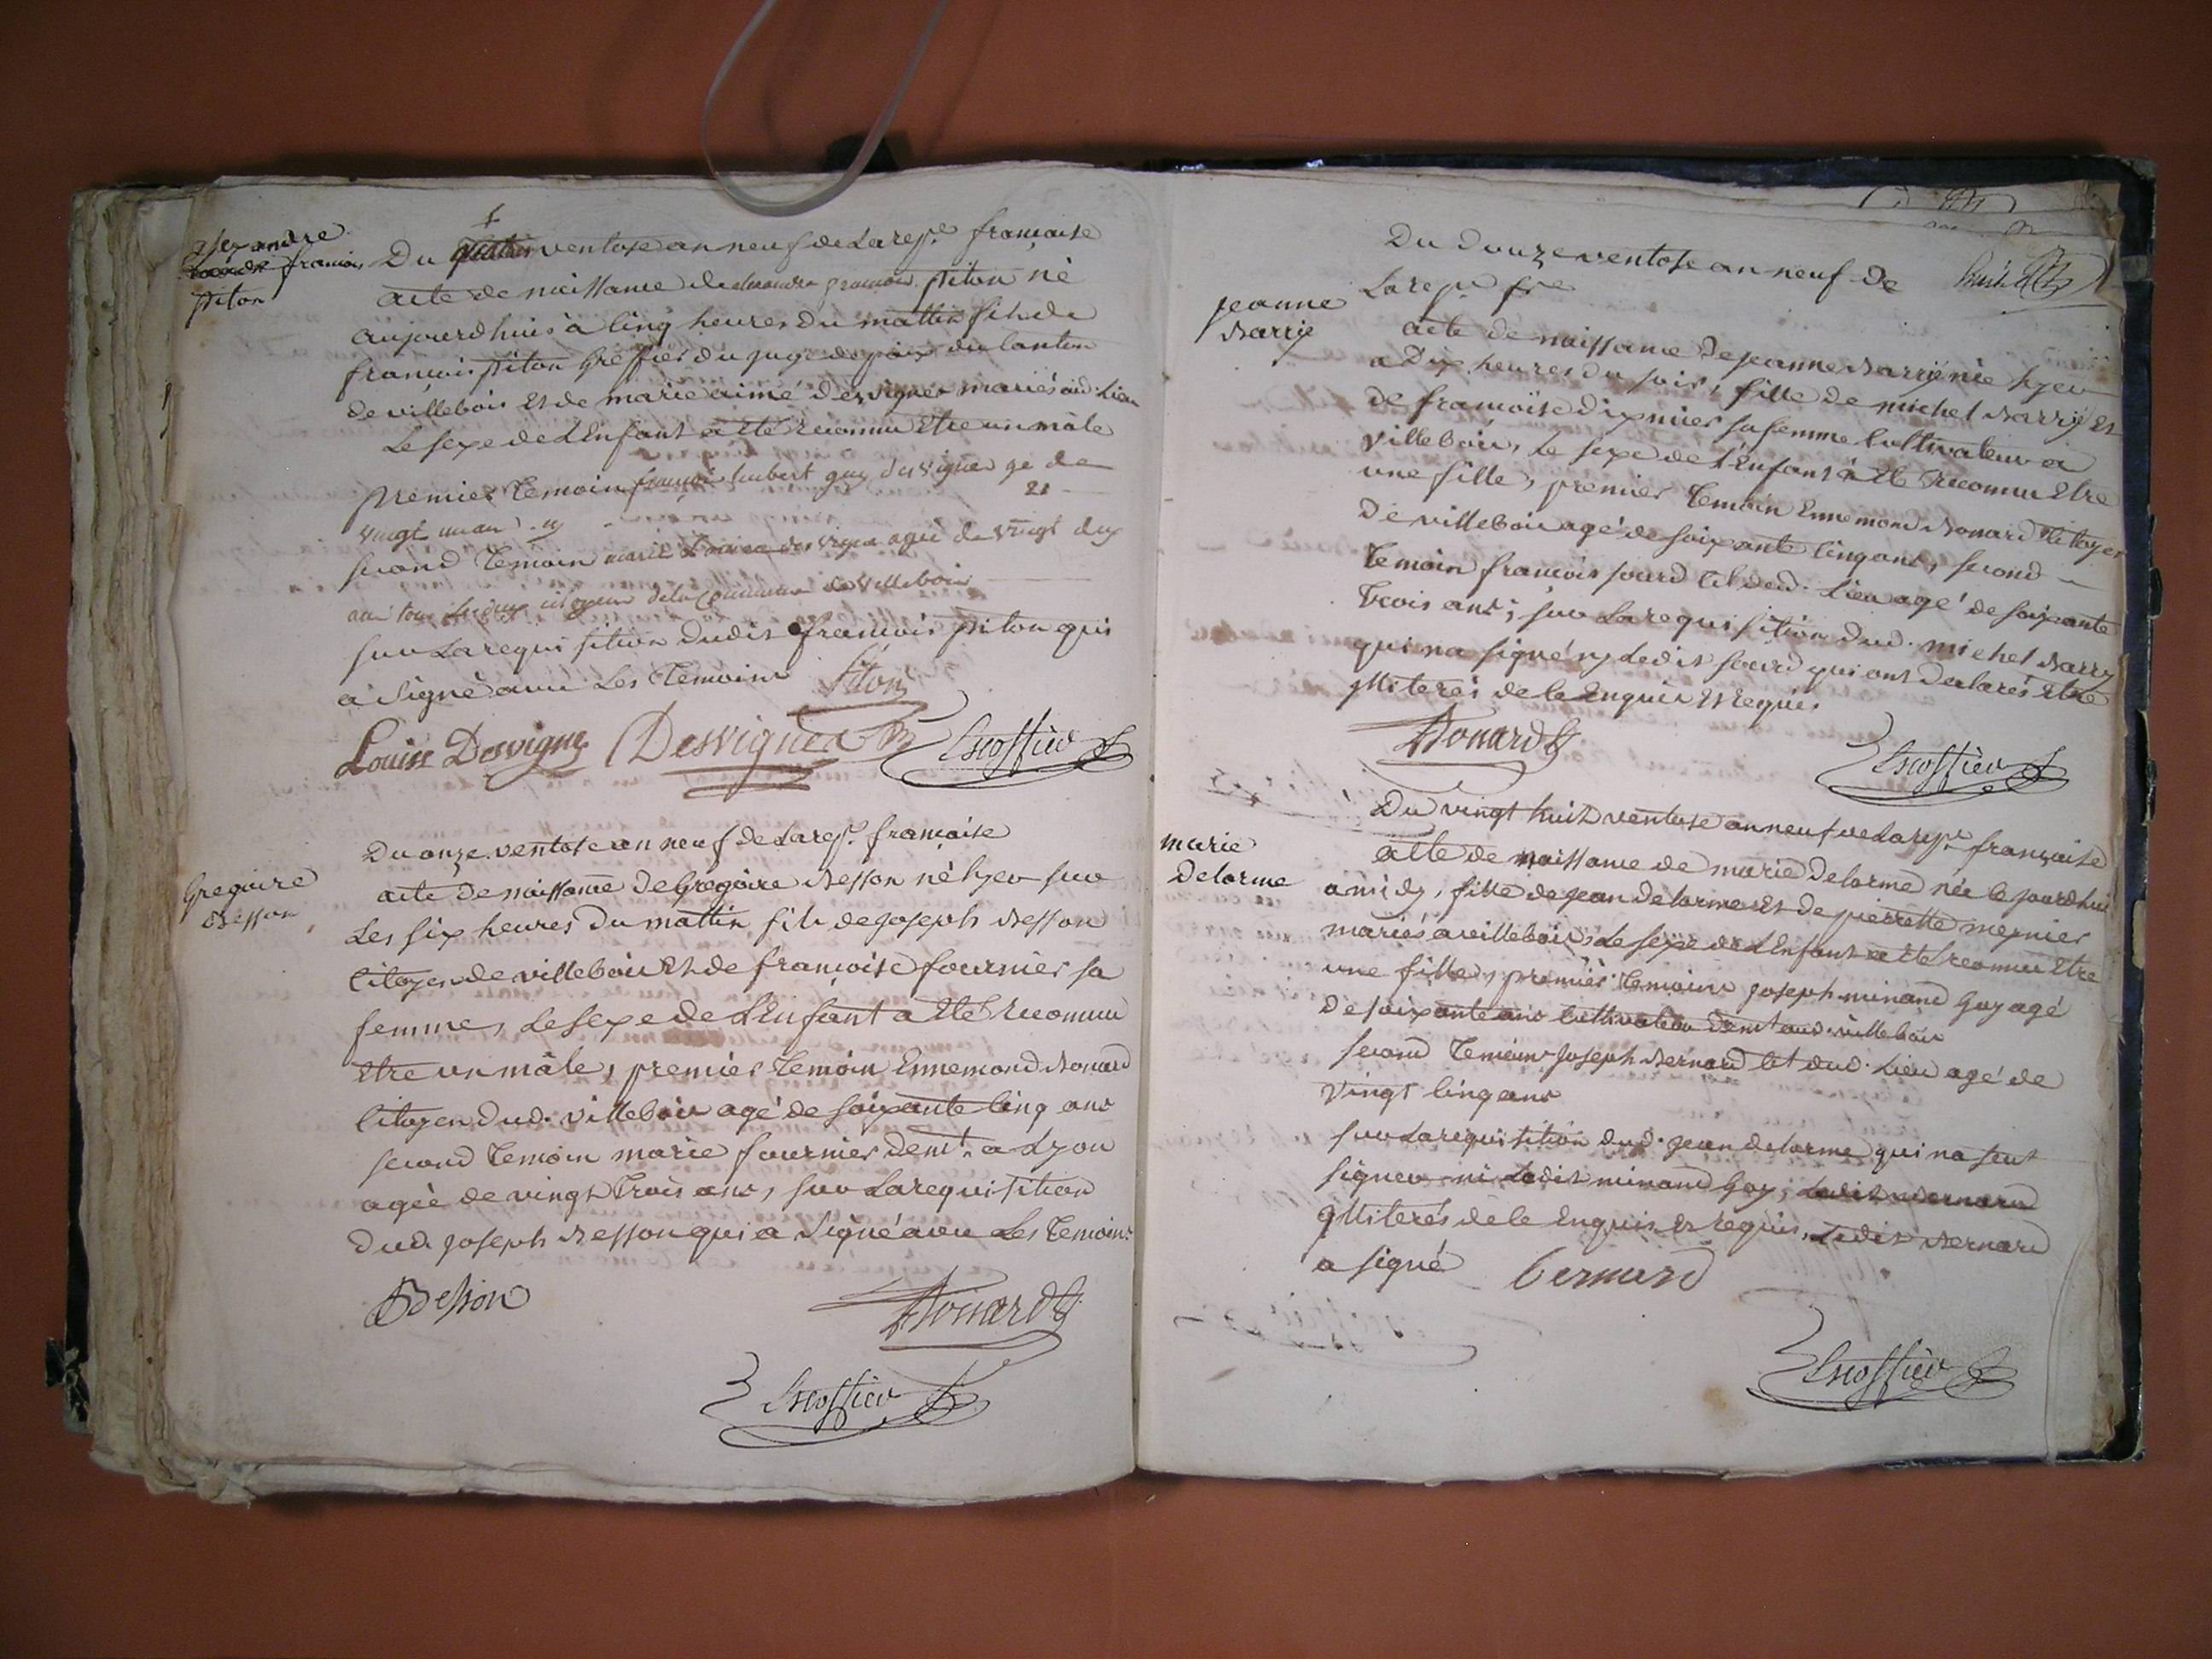 alexandre
françois
piton
Du ventose an neuf de La rep.e françoise
acte de naissance de alexandre françois piton né
aujourdhuis à cinq heures du mattin fils de
françois piton Greffier du juge de paix du Canton
de villebois et de marie aimé desvignes mariés aud. Lieu
Le sexe de L'Enfant a été reconnu Etre un mâle
premier temoin françois hubert guy desvignes de
21
vingt un an
second temoin marie Louise desvignes agée de vingt deux
ans tous Les deux citoyens de la Commune de villebois
sur La requisition dudit françois piton qui
a signé avec Les temoins piton
Louise Desvignes Desvignes Escoffier
Gregoire
Besson
Du onze ventose an neuf de La rep.e françoise
acte de naissance de Gregoire Besson né hyer sur
Les six heures du mattin fils de joseph Besson
Citoyen de villebois et de françoise fournier sa
femme, Le sexe de L'Enfant a été reconnu
Etre un mâle, premier temoin Ennemond Bonard
Citoyen dud. villebois agé de soixante cinq ans
second temoin marie fournier demt. a Lyon
agée de vingt trois ans, sur La requisition
dud. joseph Besson qui a signé avec Les temoins
Besson Bonard
Escoffier
Du douze ventose an neuf de
La repe. fse
jeanne
Barry
acte de naissance de jeanne Barry née hyer
a Dix heures du soir, fille de michel Barry et
de françoise dixmier sa femme Cultivateur a
villebois, Le sexe de L'Enfant a été reconnu Etre
une fille, premier temoin Ennemond Bonard Citoyen
de villebois agé de soixante cinq ans, second
temoin françois sourd Cit. dud. Lieu agé de soixante
trois ans, sur La requisition dud. michel Barry
qui n'a signé ny Ledit sourd qui ont declarés Etre
illiterés de ce Enquis et requis
Bonard
Escoffier
marie
Delorme
Du vingt huit ventose an neuf de La repe. française
acte de naissance de marie Delorme née ce jourdhui
a midy, fille de jean delorme et de pierrette meynier
mariés a villebois, Le sexe de L'Enfant a été reconnu Etre
une fille, premier temoin joseph minand Guy agé
de soixante ans Cultivateur demt. aud. villebois
second temoin joseph Bernard Cit. dud. Lieu agé de
vingt cinq ans
sur La requisition dud. jean delorme qui n'a seut
signer ni Ledit minand Guy, Ledit Bernard
illiterés de ce Enquis et requis, Ledit Bernard
a signé bernard
Escoffier